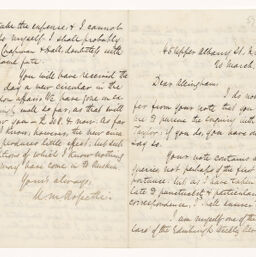 take the expense, & I cannot
do myself. I shall probably
Chapman & Hall, doubtless with
same fate.
You will have received the
day a new circular in the
affair. We have
will so far, as that will
you — the 108. & now. As far
I know, however, the new
produces little effect: but
of which I know nothing
may have come in to Ruskin.
Yours always,
W. M. Rossetti.
45 Upper Albany St. N.
20 March.
Dear Allingham,
I do not
far from your note that you
me to pursue the enquiry with
Taylor: if you do, you have only
say so.
Your note contains a
queries not perhaps of the first
portance: but as I have taken
late to punctuality &
correspondence, I will answer
I am myself one of the
care of the Edinburgh Weekly Review